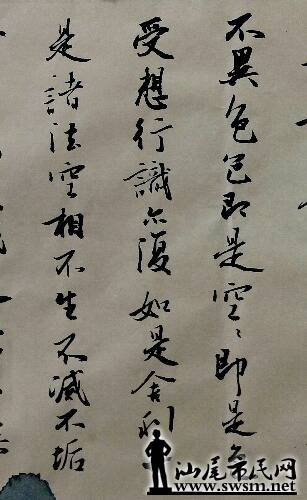 不異色色即是空〻即是色
受想行識亦復如是舍利
是諸法空相不生不滅不垢
汕尾市民网
www.swsm.net